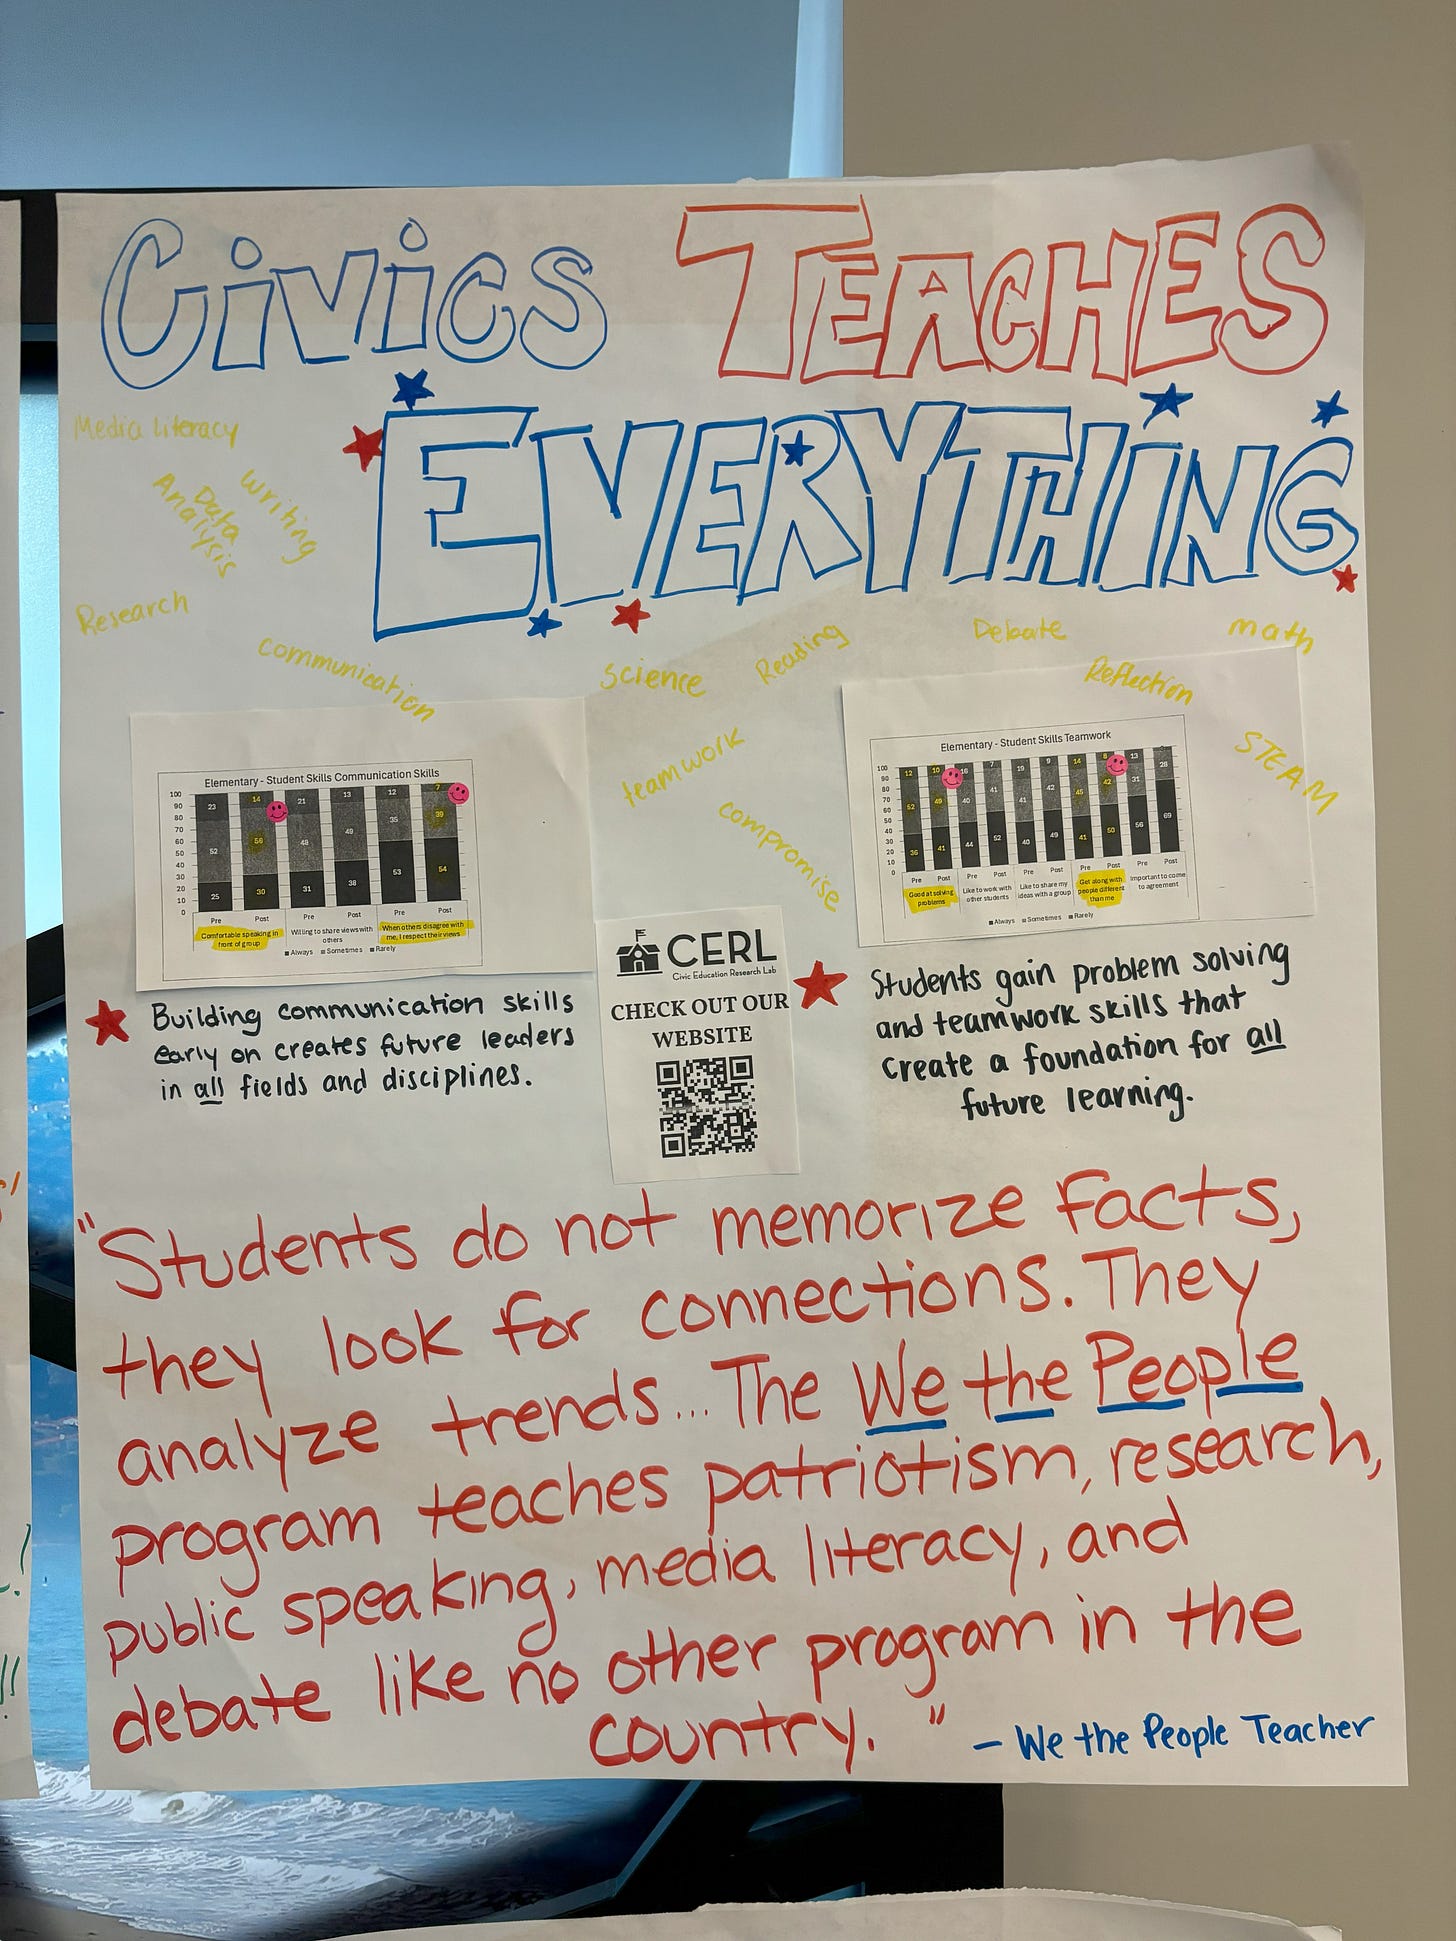 CiViCS TEACHES
EVERYTHING
Media literacy
Writing
Data
Analysis
Research
communication
science
Reading
Debate
math
Reflection
STEAM
teamwork
compromise
Elementary - Student Skills Communication Skills
100
90
80
70
60
50
40
30
20
10
0
23 14 21 13 12 7
52 56 48 49 35 39
25 30 31 38 53 54
Pre Post Pre Post Pre Post
Comfortable speaking in front of group
Willing to share views with others
When others disagree with me, I respect their views
Always Sometimes Rarely
Elementary - Student Skills Teamwork
100
90
80
70
60
50
40
30
20
10
0
12 10 16 7 19 9 14 8 13
52 49 40 41 41 42 45 42 31 28
36 41 44 52 40 49 41 50 56 69
Pre Post Pre Post Pre Post Pre Post Pre Post
Good at solving problems
Like to work with other students
Like to share my ideas with a group
Get along with people different than me
Important to come to agreement
Always Sometimes Rarely
Building communication skills
early on creates future leaders
in all fields and disciplines.
CERL
Civic Education Research Lab
CHECK OUT OUR
WEBSITE
Students gain problem solving
and teamwork skills that
create a foundation for all
future learning.
"Students do not memorize facts,
they look for connections. They
analyze trends... The We the People
program teaches patriotism, research,
public speaking, media literacy, and
debate like no other program in the
country."
- We the People Teacher